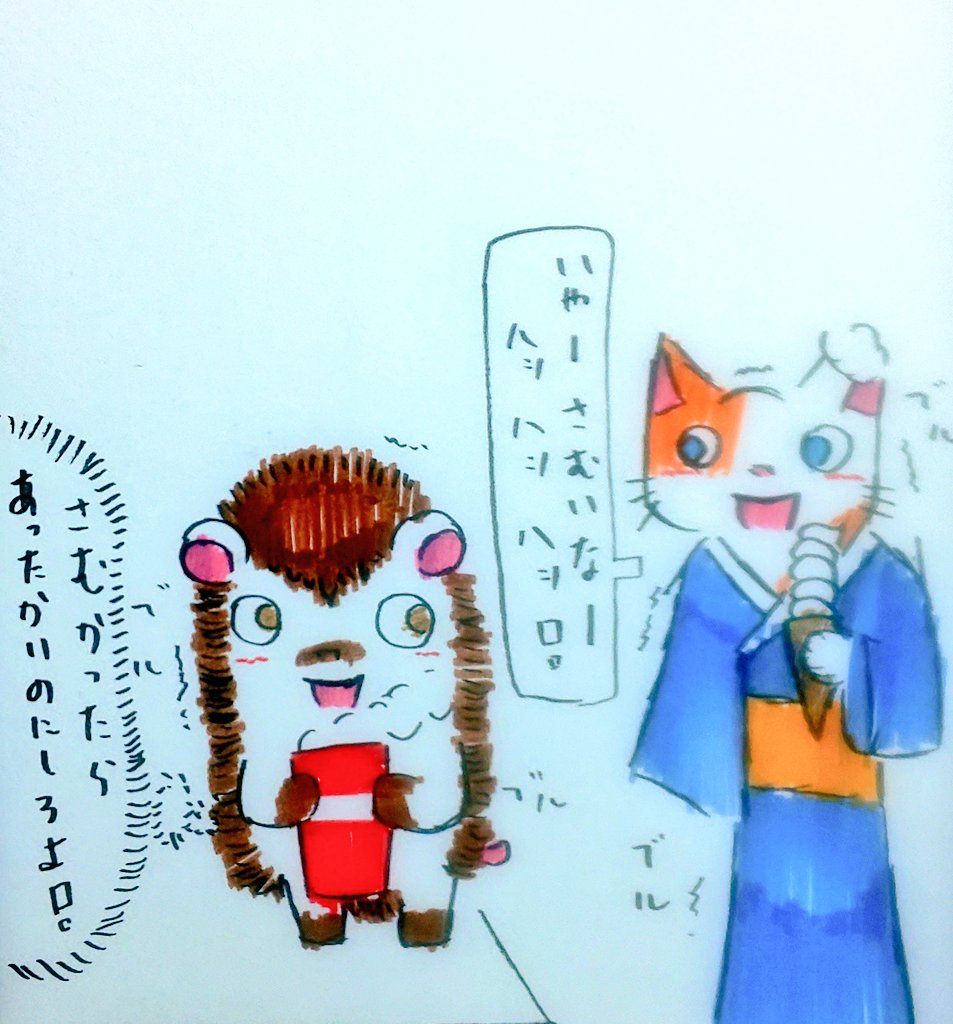 いやーさむいなー
ハハハハハハロ。
ブル
さむかったら
あったかいのにしろよロ。
ブル
ブル
ブル